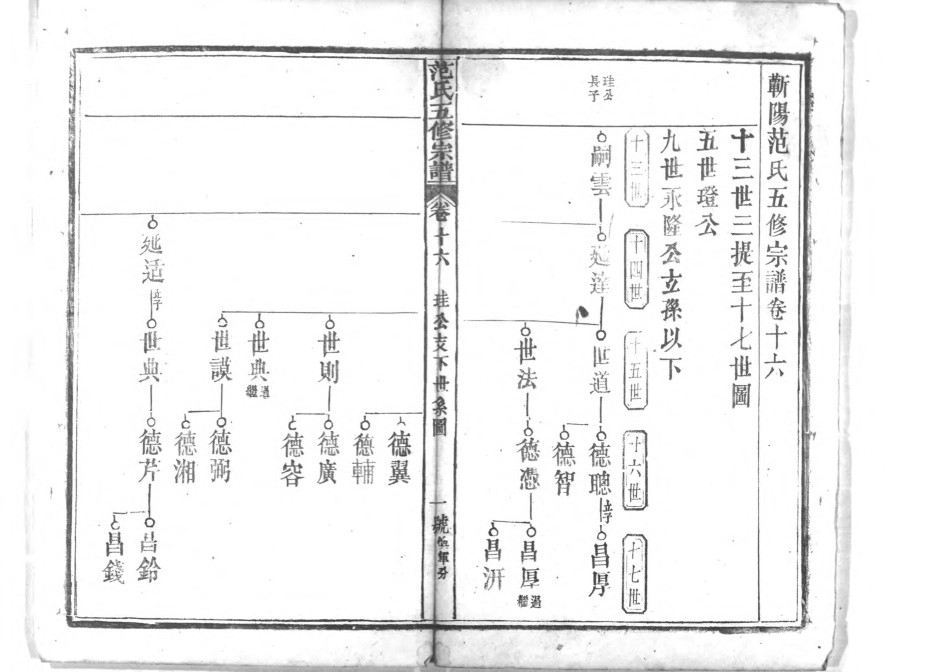 蘄陽范氏五修宗譜卷十六
十三世三提至十七世圖
五世璒公
九世永隆公玄孫以下
十三世
十四世
十五世
十六世
十七世
珪公
長子
嗣雲
延達
世道
德聰
立子
昌厚
德智
世法
德憑
昌厚
過繼
昌汧
范氏五修宗譜
卷十六
珪公支下世系圖
一號
德翼
德輔
世則
德廣
德容
世典
過繼
世謨
德弼
德湘
延适
立子
世典
德芹
昌鈴
昌錢